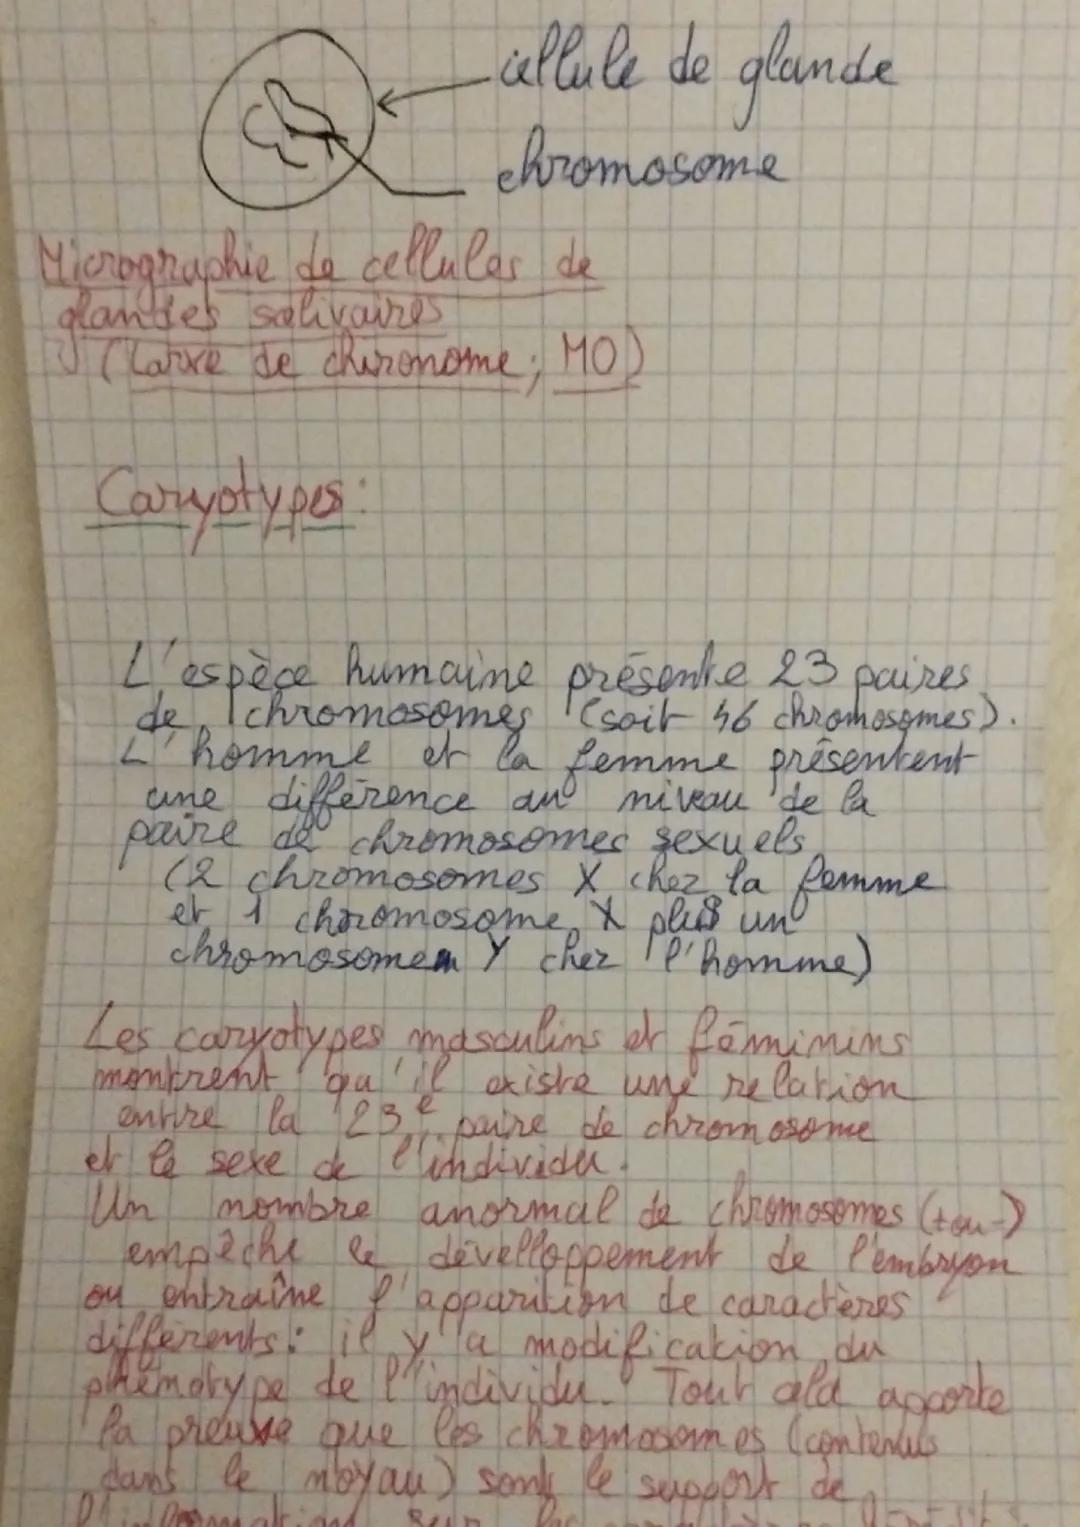 cellule de glande
chromosome
Micrographie de cellules de
glandes salivaires
(Larve de chironome ; MO)
Caryotypes :
L'espèce humaine présente 23 paires
de chromosomes (soit 46 chromosomes).
L'homme et la femme présentent
une différence au niveau de la
paire de chromosomes sexuels
(2 chromosomes X chez la femme
et 1 chromosome X plus un
chromosome Y chez l'homme)
Les caryotypes masculins et féminins
montrent qu'il existe une relation
entre la 23e paire de chromosome
et le sexe de l'individu.
Un nombre anormal de chromosomes (+ou-)
empêche le dévelloppement de l'embryon
ou entraîne l'apparition de caractères
différents : il y a modification du
phénotype de l'individu. Tout cela apporte
la preuve que les chromosomes (contenus
dans le noyau) sont le support de
l'information sur les